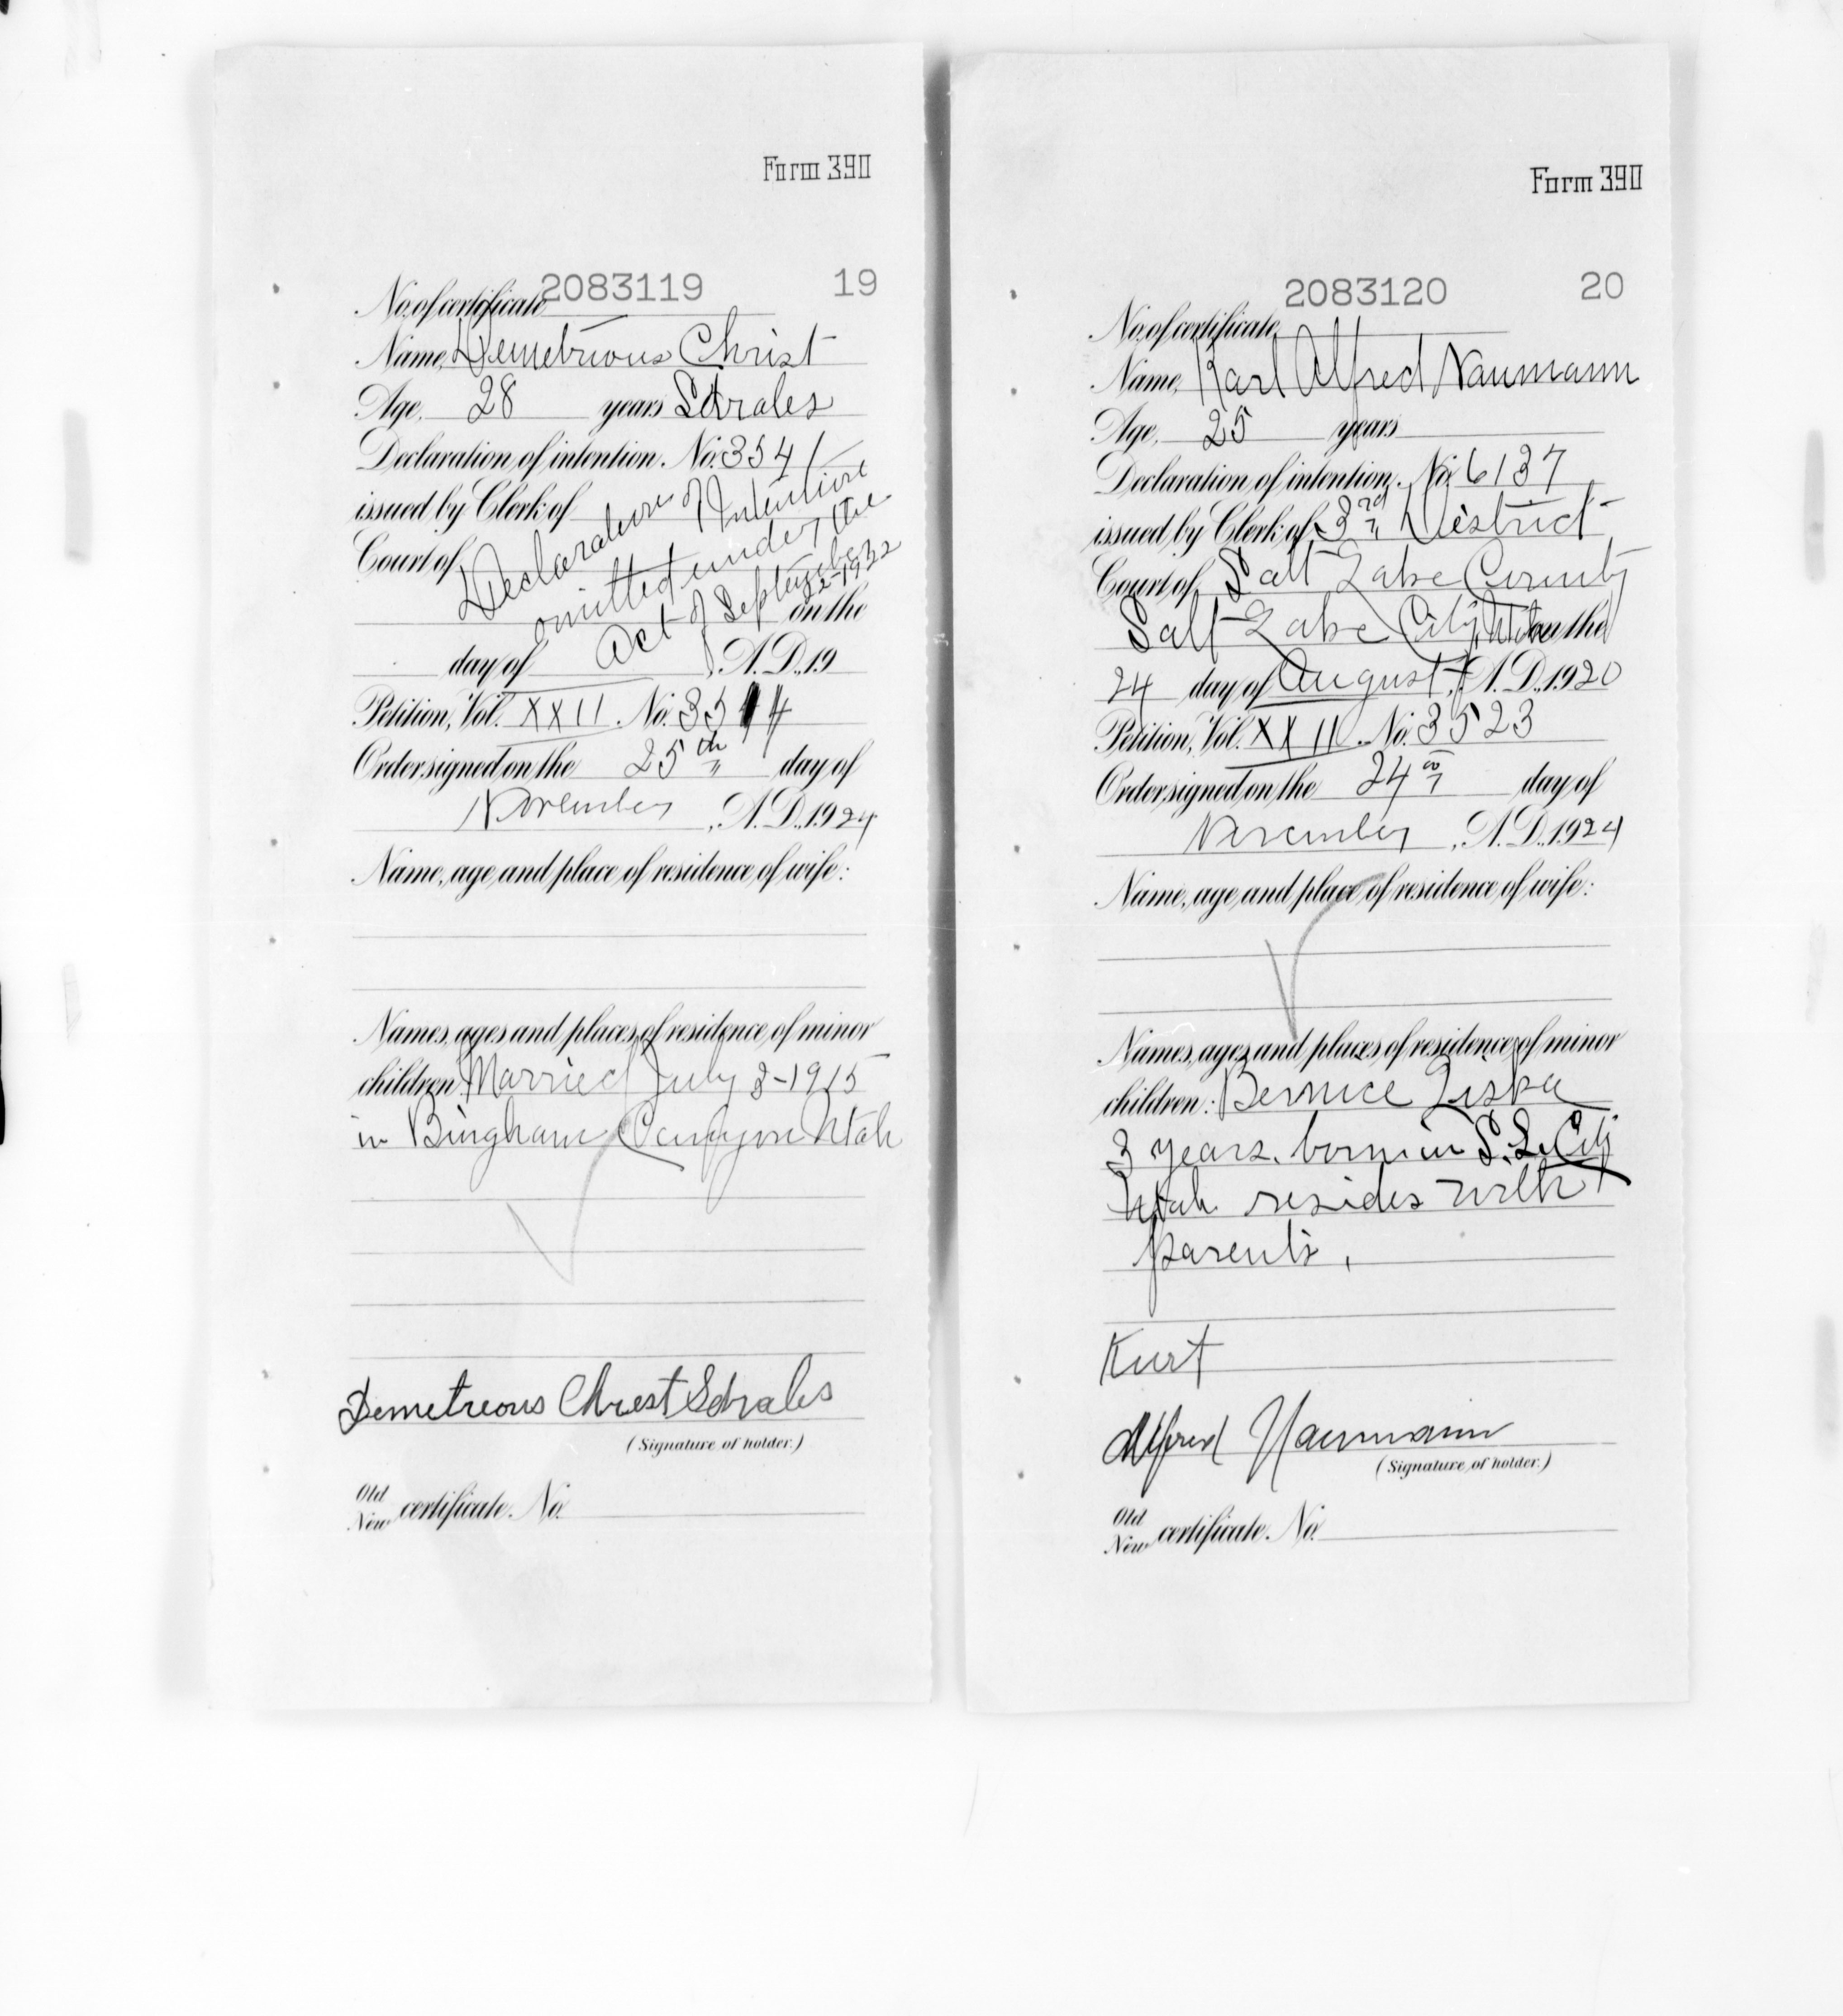 Form 390
2083119 19
No. of certificate
Name, Demetrious Christ
Age, 28 years Sdrales
Declaration of intention. No. 3541
issued by Clerk of
Court of
Declaration of Intention
omitted under the
Act of September
22-1922
on the
day of , A.D., 19
Petition, Vol. XXII. No. 35 4
Order signed on the 25th day of
November, A.D., 1924
Name, age, and place of residence of wife:
Names, ages and places of residence of minor
children: Married July 8-1915
in Bingham Canyon Utah
Demetreous Chrest Sdrales
(Signature of holder.)
Old
New certificate. No.
Form 390
2083120 20
No. of certificate
Name, Karl Alfred Naumann
Age, 25 years
Declaration of intention. No. 6137
issued by Clerk of 3rd District
Court of Salt Lake County
Salt Lake City, Utah on the
24 day of August, A.D., 1920
Petition, Vol. XXII. No. 3523
Order signed on the 24 day of
November, A.D., 1924
Name, age, and place of residence of wife:
Names, ages and places of residence of minor
children: Bernice Liska
3 years. born in S. L. City
Utah resides with
parents.
Kurt
Alfred Naumann
(Signature of holder.)
Old
New certificate. No.